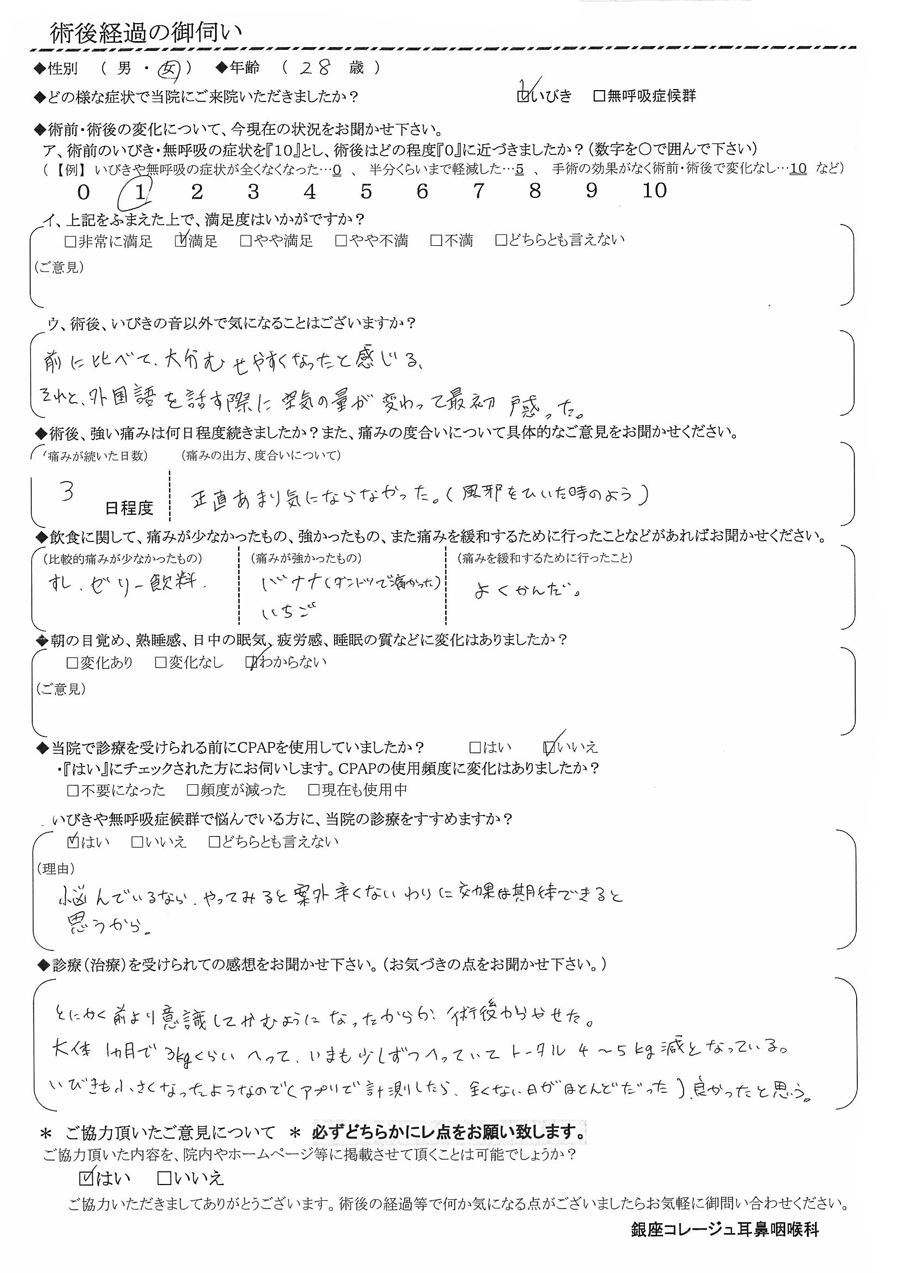 術後経過の御伺い
◆性別 ( 男 ・ 女 ) ◆年齢 ( 28 歳 )
◆どの様な症状で当院にご来院いただきましたか? ☑いびき □無呼吸症候群
◆術前・術後の変化について、今現在の状況をお聞かせ下さい。
ア、術前のいびき・無呼吸の症状を『10』とし、術後はどの程度『0』に近づきましたか?(数字を○で囲んで下さい)
(【例】いびきや無呼吸の症状が全くなくなった…0 、 半分くらいまで軽減した…5 、 手術の効果がなく術前・術後で変化なし…10 など)
0 1 2 3 4 5 6 7 8 9 10
イ、上記をふまえた上で、満足度はいかがですか?
□非常に満足 ☑満足 □やや満足 □やや不満 □不満 □どちらとも言えない
(ご意見)
ウ、術後、いびきの音以外で気になることはございますか?
前に比べて、大分むせやすくなったと感じる、
それと、外国語を話す際に空気の量が変わって最初戸惑った。
◆術後、強い痛みは何日程度続きましたか?また、痛みの度合いについて具体的なご意見をお聞かせください。
(痛みが続いた日数) (痛みの出方、度合いについて)
3 日程度 正直あまり気にならなかった。(風邪をひいた時のよう)
◆飲食に関して、痛みが少なかったもの、強かったもの、また痛みを緩和するために行ったことなどがあればお聞かせください。
(比較的痛みが少なかったもの) (痛みが強かったもの) (痛みを緩和するために行ったこと)
すし、ゼリー飲料. バナナ(ダントツで痛かった) よくかんだ。
いちご
◆朝の目覚め、熟睡感、日中の眠気、疲労感、睡眠の質などに変化はありましたか?
□変化あり □変化なし ☑わからない
(ご意見)
◆当院で診療を受けられる前にCPAPを使用していましたか? □はい ☑いいえ
・『はい』にチェックされた方にお伺いします。CPAPの使用頻度に変化はありましたか?
□不要になった □頻度が減った □現在も使用中
いびきや無呼吸症候群で悩んでいる方に、当院の診療をすすめますか?
☑はい □いいえ □どちらとも言えない
(理由)
悩んでいるなら、やってみると案外辛くないわりに効果は期待できると
思うから。
◆診療(治療)を受けられての感想をお聞かせ下さい。(お気づきの点をお聞かせ下さい。)
とにかく前より意識してかむようになったからか、術後からやせた。
大体1ヵ月で3kgくらいへって、いまも少しずつへっていてトータル4~5kg減となっている。
いびきも小さくなったようなので(アプリで計測したら、全くない日がほとんどだった)良かったと思う。
* ご協力頂いたご意見について * 必ずどちらかにレ点をお願い致します。
ご協力頂いた内容を、院内やホームページ等に掲載させて頂くことは可能でしょうか?
☑はい □いいえ
ご協力いただきましてありがとうございます。術後の経過等で何か気になる点がございましたらお気軽に御問い合わせください。
銀座コレージュ耳鼻咽喉科